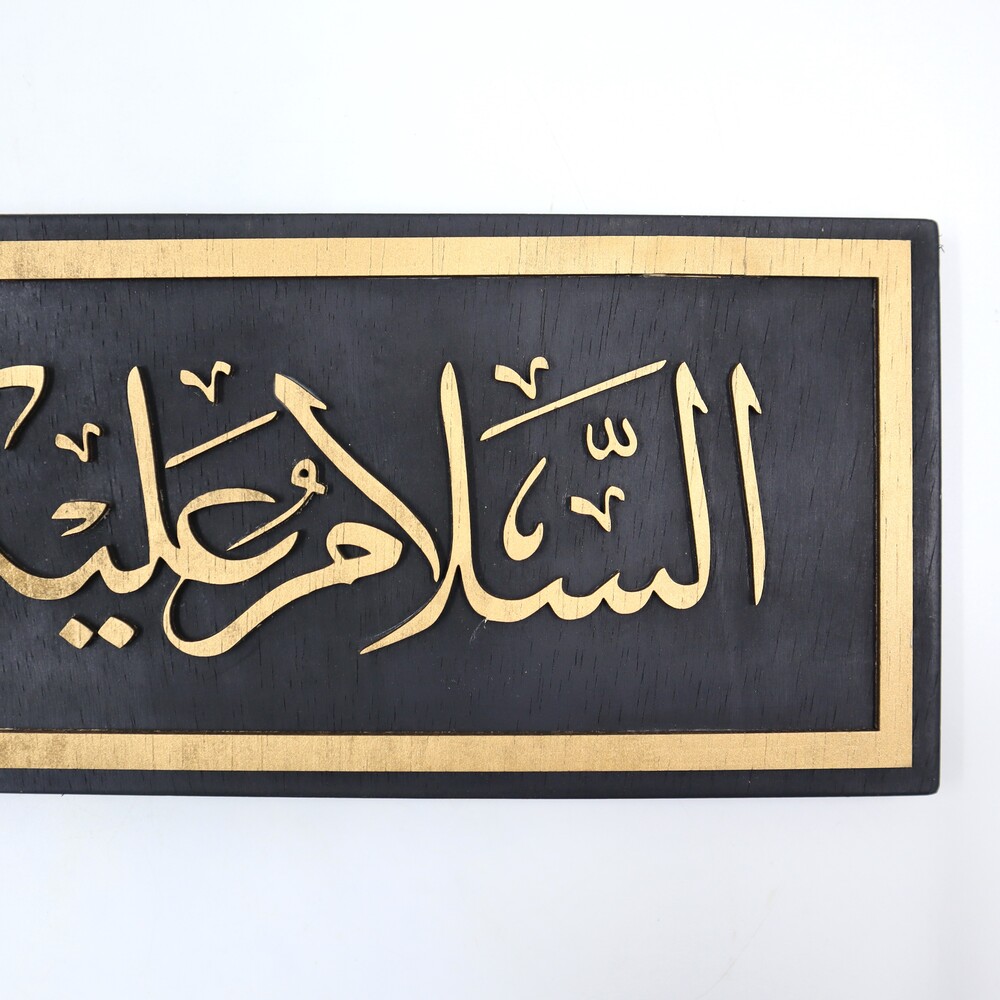 السَّلَامُ عَلَيـ